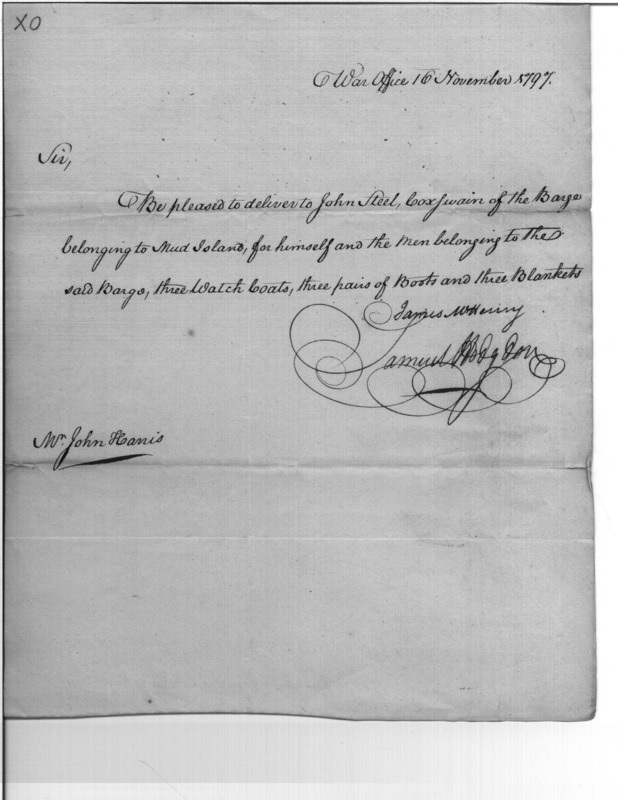 XO
War Office 16 November 1797.
Sir,
Be pleased to deliver to John Steel, Coxswain of the Barge
belonging to Mud Island, for himself and the men belonging to the
said Barge, three Watch Coats, three pairs of Boots and three Blankets
James McHenry
Samuel Hodgdon
Mr. John Harris